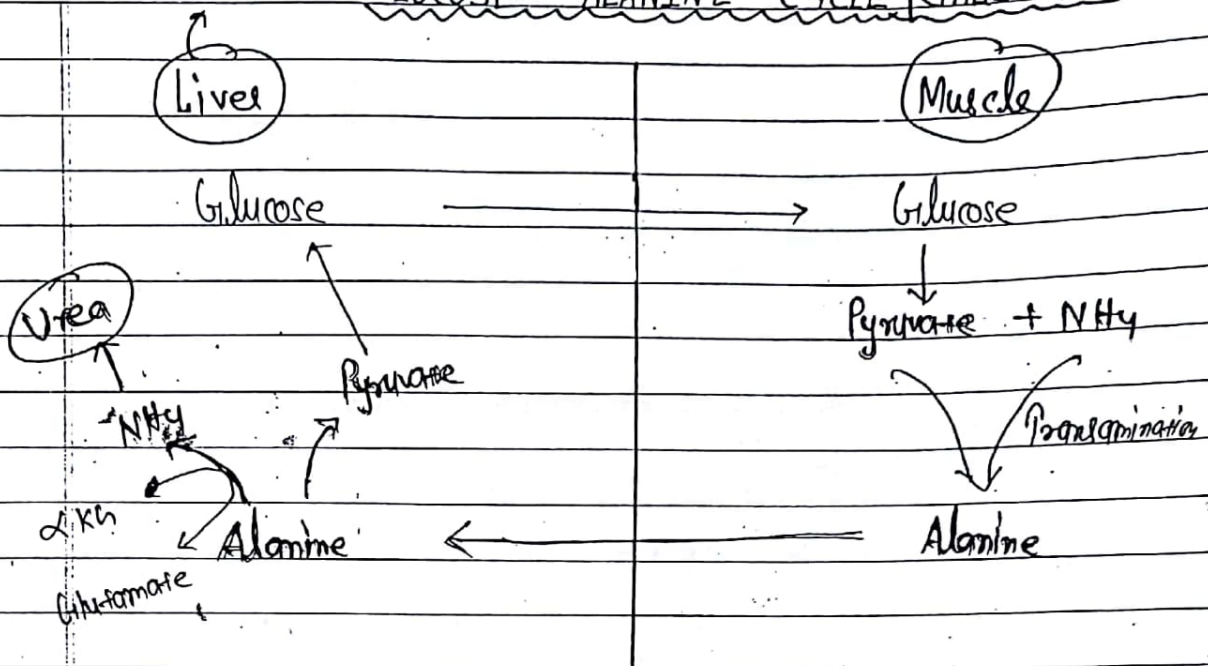 ALANINE CYCLE
Liver Muscle
Glucose Glucose
Urea
Pyruvate + NH4
Pyruvate
NH4
Transamination
αKG
Alanine Alanine
Glutamate